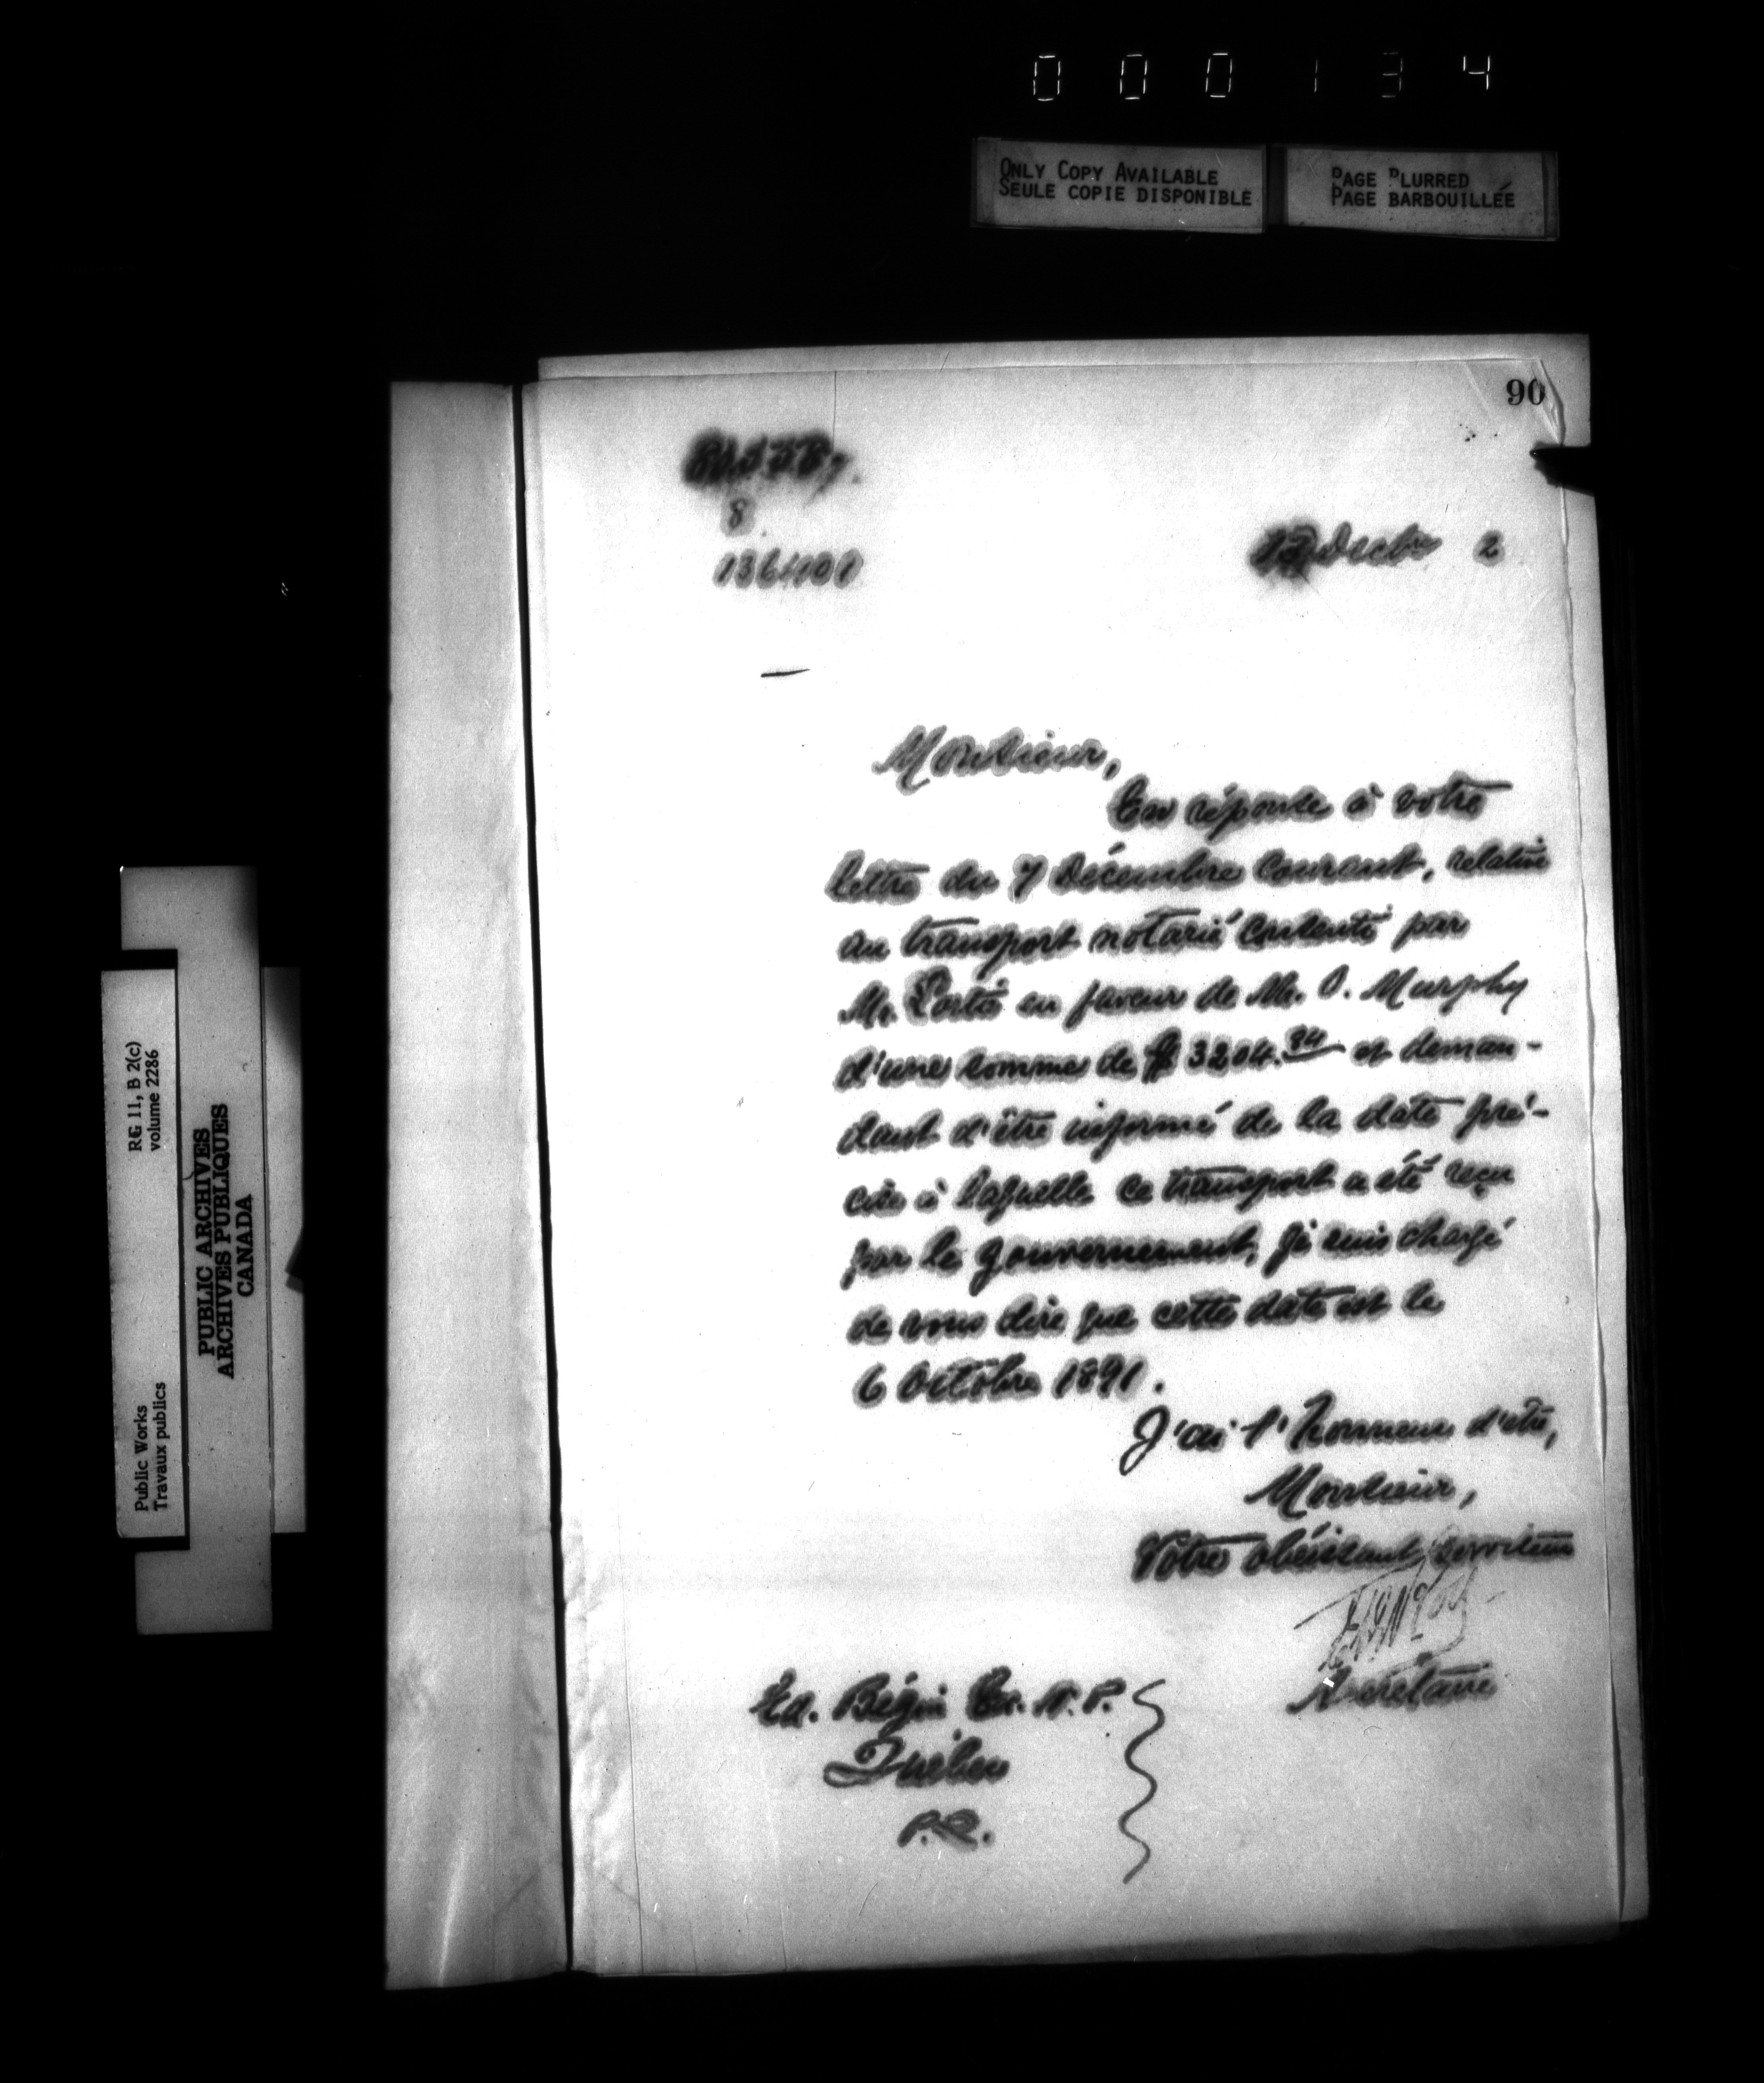 000134
ONLY COPY AVAILABLE
SEULE COPIE DISPONIBLE
PAGE BLURRED
PAGE BARBOUILLÉE
90
8
136401
Decbre 2
Monsieur,
En réponse à votre
lettre du 7 Décembre Courant, relative
au transport notarié consenti par
M. en faveur de M. O. Murphy
d'une somme de $ 3204.84 et deman-
dant d'être informé de la date pré-
cise à laquelle ce transport a été reçu
par le gouvernement, je suis chargé
de vous dire que cette date est le
6 Octobre 1891.
J'ai l'honneur d'être,
Monsieur,
Votre obéissant serviteur
Secrétaire
Ed. Bégin Er. N.P.
Québec
P.Q.
RG 11, B 2(c)
volume 2286
Public Works
Travaux publics
PUBLIC ARCHIVES
ARCHIVES PUBLIQUES
CANADA